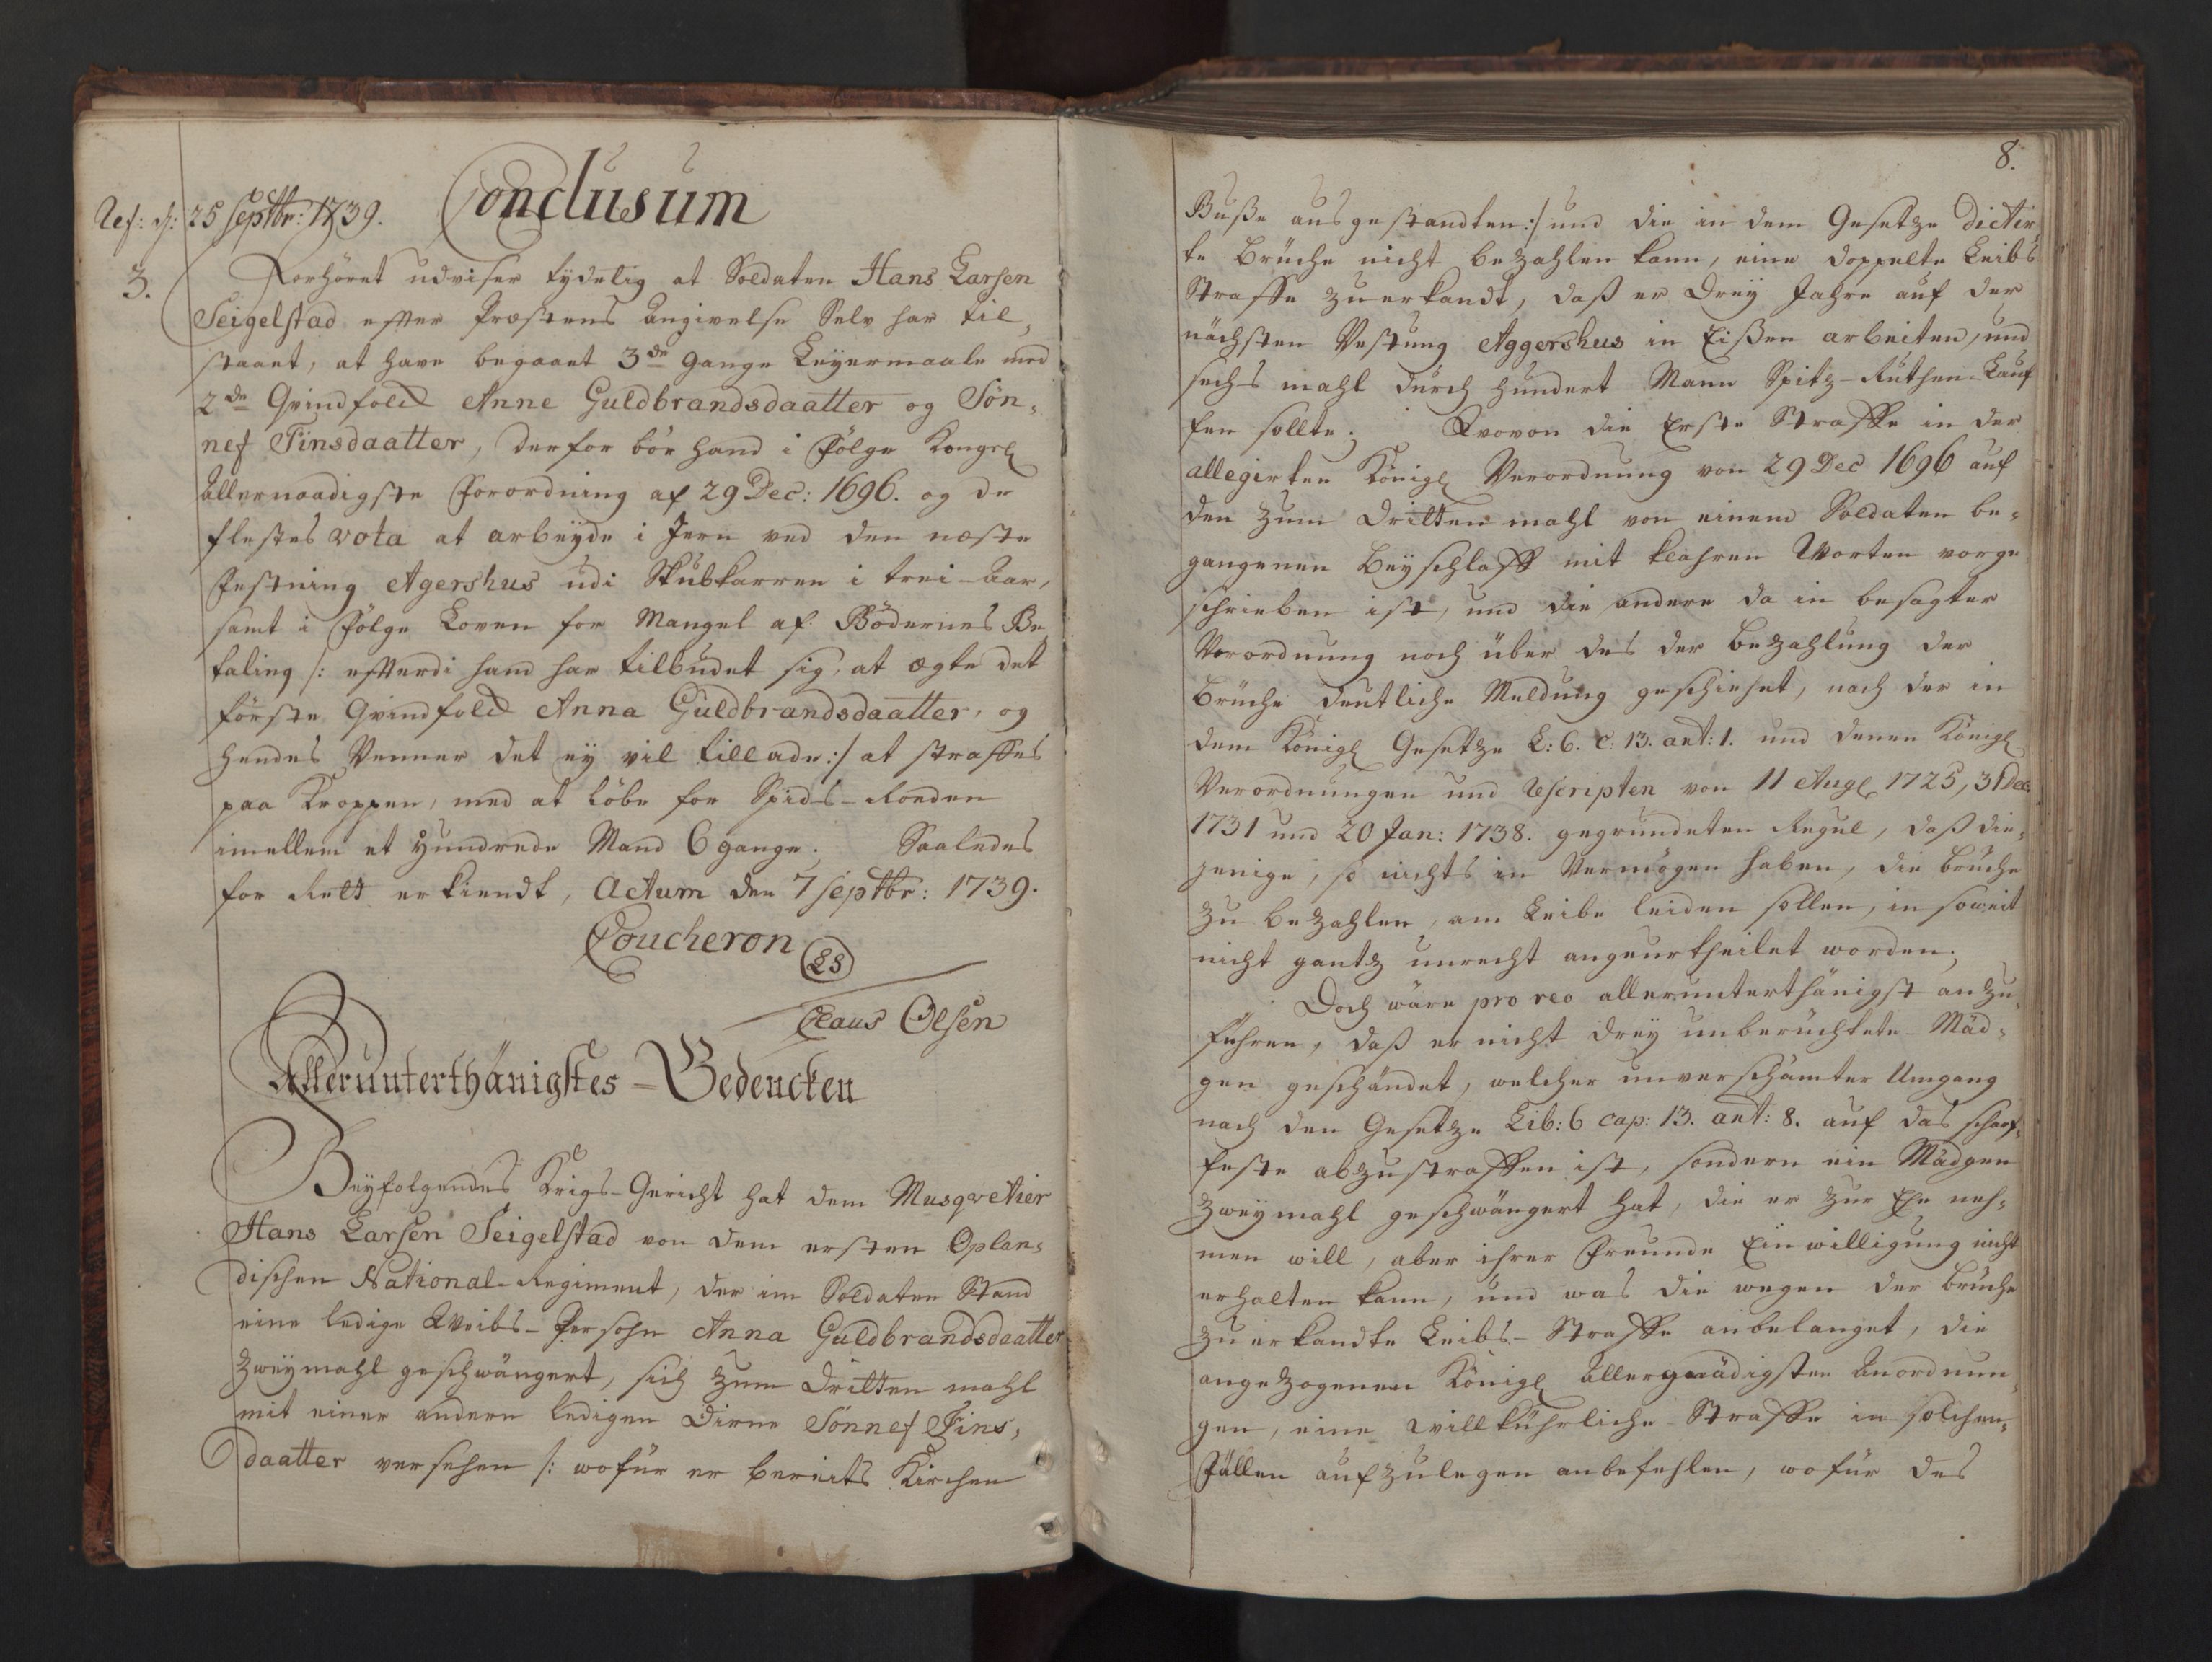 Conclusum
Ref: d: 25 Septbr: 1739.
3.
Forhöret udviser tydelig at Soldaten Hans Larsen
Seigelstad efter Præstens Angivelse Selv har til„
staaet, at have begaaet 3de gange Leyermaale med
2de Qvindfolck Anne Guldbrandsdaatter og Sön„
nef Finsdaatter, derfor bör hand i Fölge Kongel
Allernaadigste Forordning af 29 Dec: 1696. og de
flestes vota at arbeyde i Jern ved den næste
Festning Agershus udi Skubkarren i trei-Aar,
samt i Fölge Loven for Mangel af Bödernes Be„
taling /: efterdi hand har tilbudet sig, at ægte det
förste Qvindfolck Anna Guldbrandsdaatter, og
hendes Venner det ey vil tillade :/ at straffes
paa Kroppen, med at löbe for Spids-Roeden
imellem et Hundrede Mand 6 gange. Saaledes
for Rett erkiendt, Actum den 7 Septbr: 1739.
Coucheron (LS)
Claus Olsen
Allerunterthänigstes-Bedencken
Beyfolgendes Krigs-Gericht hat dem Musqvetier
Hans Larsen Seigelstad von dem ersten Oplan„
dischen National-Regiment, der im Soldaten Stand
eine ledige Weibs-Persohn Anna Guldbrandsdaatter
zweymahl geschwängert, sich zum dritten mahl
mit einer andern ledigen Dirne Sönnef Fins„
daatter versehen /: wofür er bereits Kirchen
8.
Buße ausgestandten :/ und die in dem Gesetze dictir
te Brüche nicht bezahlen kann, eine doppelte Leibs
Straffe zuerkandt, daß er Drey Jahre auf der
nächsten Vestung Aggershus in Eißen arbeiten, und
sechs mahl durch hundert Mann Spitz-Ruthen-Lauf
fen sollte. Wovon die Erste Straffe in der
allegirten Königl Verordnung von 29 Dec 1696 auf
den zum dritten mahl von einem Soldaten be„
gangenen Beyschlaff mit klahren Worten vorge
schrieben ist, und die andere da in besagter
Verordnung noch über des der Bezahlung der
Brüche deutliche Meldung geschiehet, nach der in
dem Königl Gesetze L: 6. C: 13. art: 1. und denen Königl
Verordnungen und Rescripten von 11 Aug 1725, 31 Dec.
1731 und 20 Jan: 1738. gegrundeten Regul, daß die„
jenige, so nichts in Vermögen haben, die Brüche
zu bezahlen, am Leibe leiden sollen, in soweit
nicht gantz unrecht angeurtheilet worden.
Doch wäre pro reo allerunterthänigst anzu„
führen, daß er nicht drey unberüchtete-Mäd„
gen geschändet, welcher unverschämter Umgang
nach den Gesetze Lib: 6 cap: 13. art: 8. auf das scharf„
feste abzustraffen ist, sondern ein Mädgen
zweymahl geschwängert hat, die er zur Ehe neh„
men will, aber ihrer Freunde Einwilligung nicht
erhalten kann, und was die wegen der Brüche
zuerkandte Leibs-Straffe anbelanget, die
angezogenen Königl Allergnädigsten Anordnun„
gen, eine willkührliche-Straffe in solchen„
Fällen aufzulegen anbefehlen, wofür des